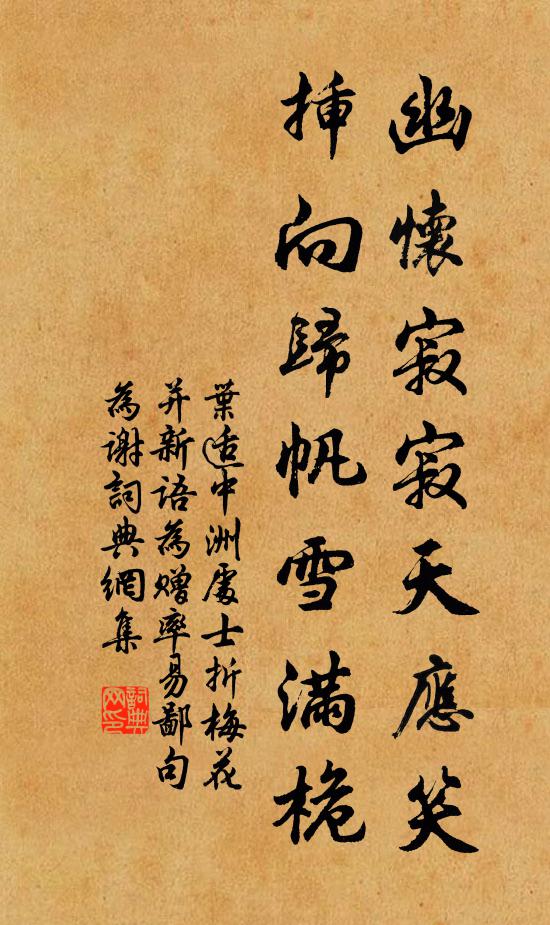 幽懷寂寂天應笑
挿向歸帆雪滿桅
葉适中洲處士折梅花
并新語為贈率易鄙句
為謝詞典網集
詞典网印